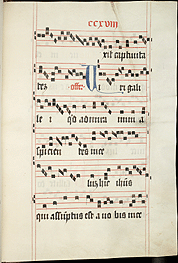 ccxviii
xit captiuita
tez offer. Viri gali
le i qd admira mini a
spicien tes in ce
lu hic ihus
qui assuptus est a uo bis in ce